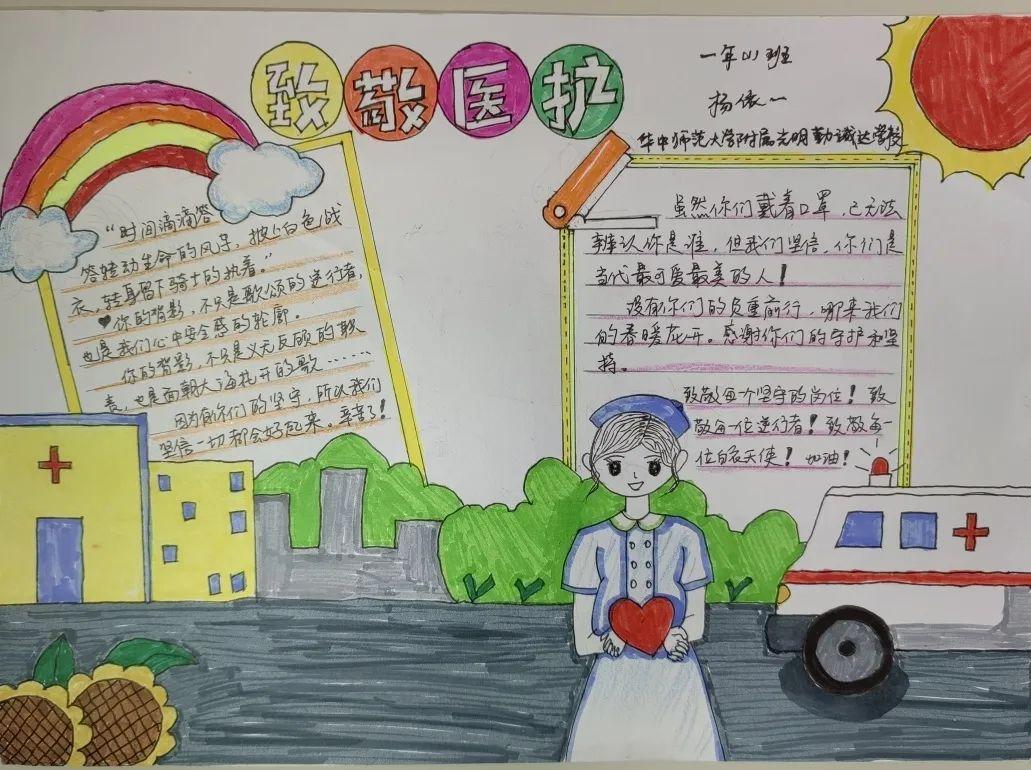 致敬医护
一年(1)班
杨依一
华中师范大学附属光明勤诚达学校
“时间滴滴答
答转动生命的风子,披上白色战
衣,转身留下骑士的执着。”
你的背影,不只是歌颂的逆行者,
也是我们心中安全感的轮廓。
你的背影,不只是义无反顾的职
责,也是面朝大海扎开的歌……
因为有你们的坚守,所以我们
坚信一切都会好起来。辛苦了!
虽然你们戴着口罩,已无法
辨认你是谁,但我们坚信,你们是
当代最可爱最美的人!
没有你们的负重前行,哪来我们
的春暖花开。感谢你们的守护和坚
持。
致敬每个坚守的岗位!致
敬每一位逆行者!致敬每一
位白衣天使!加油!